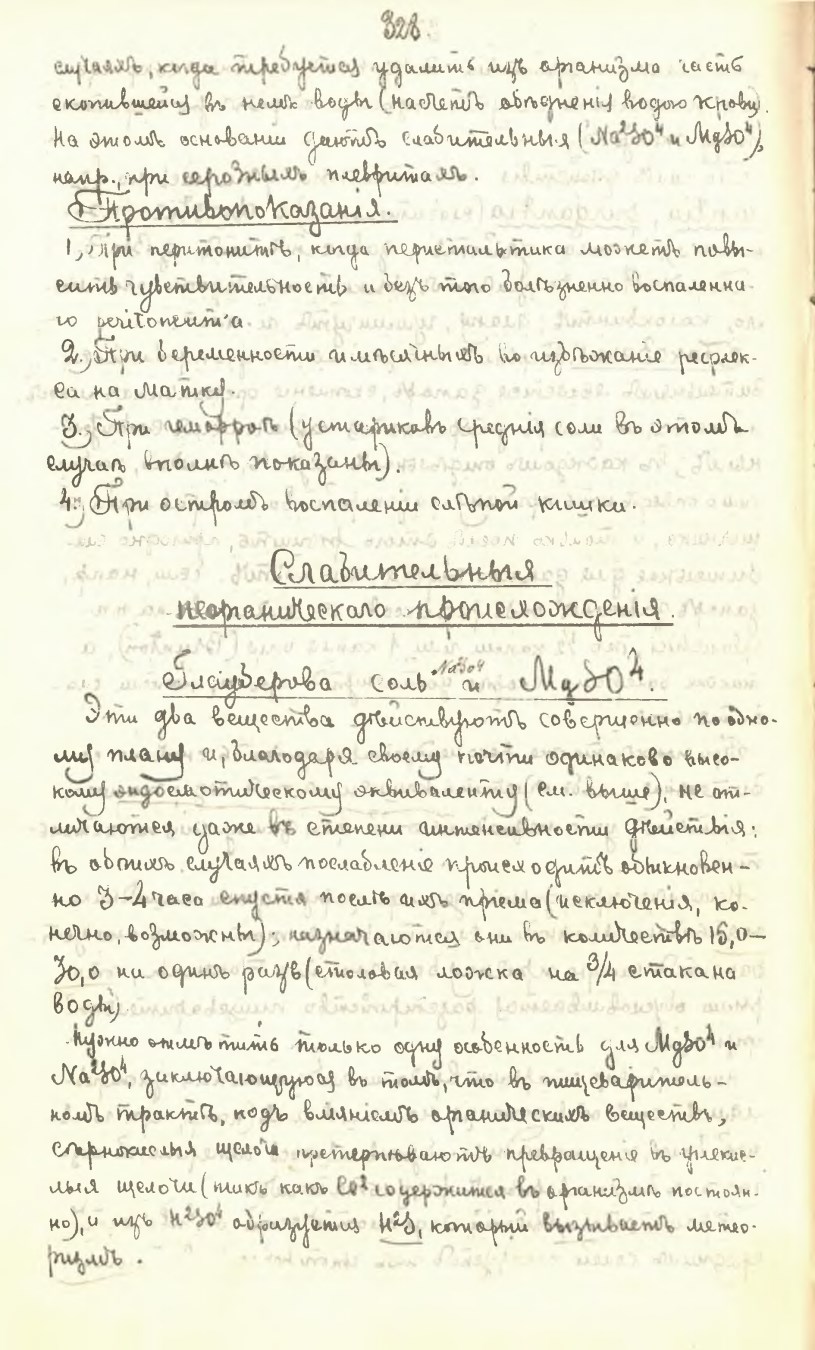 328.
случаяхъ, когда требуется удалить изъ организма часть
скопившейся въ немъ воды (насчетъ объѣдненія водою крови).
На этомъ основаніи даютъ слабительныя (Na²SO⁴ и MgSO⁴),
напр., при серозныхъ плевритахъ.
Противопоказанія.
1, При перитонитѣ, когда перистальтика можетъ повы-
сить чувствительность и безъ того болѣзненно воспаленна
го peritoneum'а
2, При беременности и мѣсячныхъ во избѣжаніе рефлек-
са на матку.
3, При геморроѣ (у стариковъ среднія соли въ этомъ
случаѣ вполнѣ показаны).
4, При остромъ воспаленіи слѣпой кишки.
Слабительныя
неорганическаго происхожденія.
Глауберова соль Na²SO⁴ и MgSO⁴.
Эти два вещества дѣйствуютъ совершенно по одно-
му плану и, благодаря своему почти одинаково высо-
кому эндосмотическому эквиваленту (см. выше), не от-
личаются даже въ степени интенсивности дѣйствія:
въ обоихъ случаяхъ послабленіе происходитъ обыкновен-
но 3-4 часа спустя послѣ ихъ пріема (исключенія, ко-
нечно, возможны); назначаются они въ количествѣ 15,0—
30,0 на одинъ разъ (столовая ложка на 3/4 стакана
воды)
Нужно отмѣтить только одну особенность для MgSO⁴ и
Na²SO⁴, заключающуюся въ томъ, что въ пищеваритель-
номъ трактѣ, подъ вліяніемъ органическихъ веществъ,
сѣрнокислыя щелочи претерпѣваютъ превращеніе въ углекис-
лыя щелочи (такъ какъ CO² содержится въ организмѣ постоян-
но), и изъ H²SO⁴ образуется H²S, который вызываетъ метео-
ризмъ.